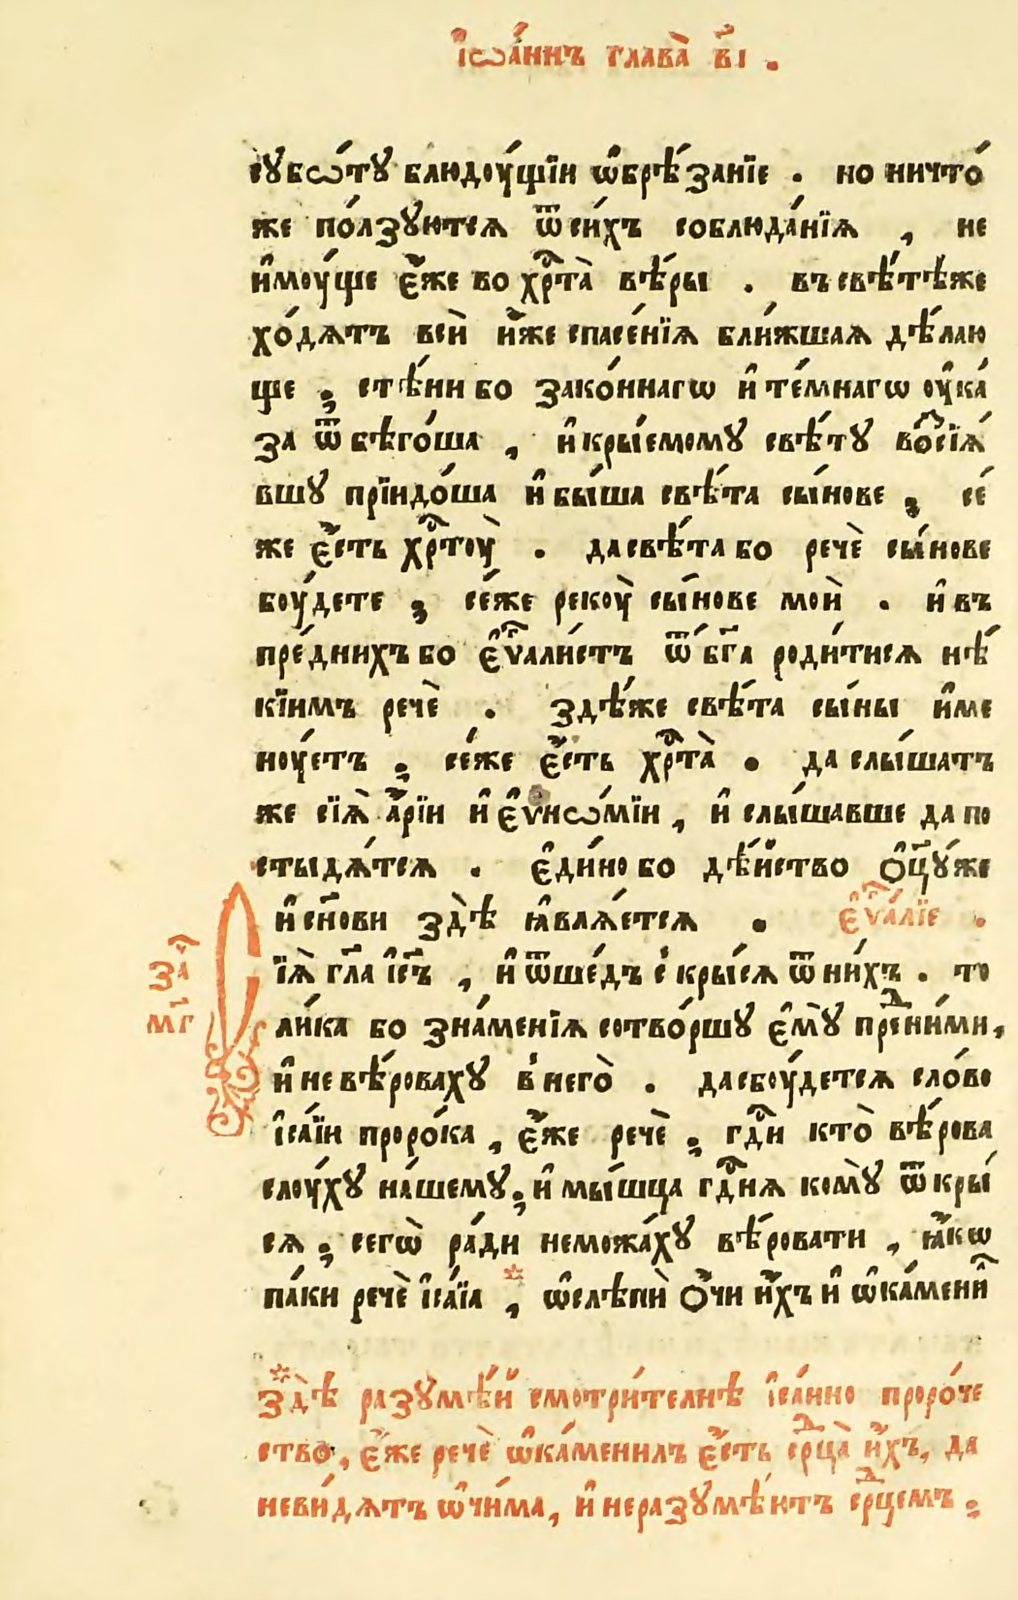 І҆ѡа́ннъ глава̀ в҃і .
сꙋбѡ́тꙋ блюдоу́щїи ѡ҆брѣ́занїе . но ничто́
же по́лзꙋютсѧ ѿ си́хъ соблюда́нїѧ , не
и҆моу́ще є҆́же во хрⷭ҇та̀ вѣ́ры . въ свѣ́тѣже
хо́дѧтъ всѝ и҆́же спасе́нїѧ бли́жшаѧ дѣ́лаю
ще ; стѣ́ни бо зако́ннагѡ и҆ те́мнагѡ оу҆ка́
за ѿ бѣго́ша , и҆ кры́емомꙋ свѣ́тꙋ воⷭ҇сїѧ́
вшꙋ прїидо́ша и҆ бы́ша свѣ́та сы́нове ; се́
же є҆́сть хрⷭ҇тоу̀ . да свѣ́та бо речѐ сы́нове
боу́дете ; се́же рекоу̀ сы́нове моѝ . и҆ въ
пре́днихъ бо є҆ѵⷢ҇али́стъ ѿ бг҃а роди́тисѧ нѣ́
кїимъ речѐ . здѣ́же свѣ́та сы́ны и҆ме
ноу́етъ ; се́же є҆́сть хрⷭ҇та̀ . да слы́шатъ
же сїѧ̀ а҆́рїи и҆ є҆ѵнѡ́мїи , и҆ слы́шавше да по
стыдѧ́тсѧ . є҆ди́но бо дѣ́йство ѻ҆ц҃ꙋ́же
и҆ сн҃ови здѣ̀ ꙗ҆влѧ́етсѧ . є҆ѵⷢ҇а́лїе .
Сїѧ̀ гл҃а і҆с҃ъ , и҆ ѿше́дъ с̾кры́сѧ ѿ ни́хъ . то
ли́ка бо зна́менїѧ сотво́ршꙋ є҆мꙋ̀ преⷣни́ми ,
и҆ не вѣ́ровахꙋ в̾ него̀ . да сбоу́детсѧ сло́во
і҆са́їи проро́ка , є҆́же речѐ ; гдⷭ҇и кто̀ вѣ́рова
слоу́хꙋ на́шемꙋ ; и҆ мы́шца гдⷭ҇нѧ комꙋ̀ ѿкры́
сѧ ; сегѡ̀ ра́ди не можа́хꙋ вѣ́ровати , ꙗ҆́кѡ
па́ки речѐ і҆са́їа , * ѡ҆слѣпѝ ѻ҆́чи и҆́хъ и҆ ѡ҆ка́мениⷧ҇
заⷱ҇
мг҃
* здѣ̀ разꙋмѣ́й смотри́телнѣ і҆са́ино проро́че
ство , є҆́же речѐ ѡ҆ка́менилъ є҆́сть срⷣца̀ и҆́хъ , да
не ви́дѧтъ ѡ҆чи́ма , и҆ не разꙋмѣ́ютъ срⷣцемъ ;